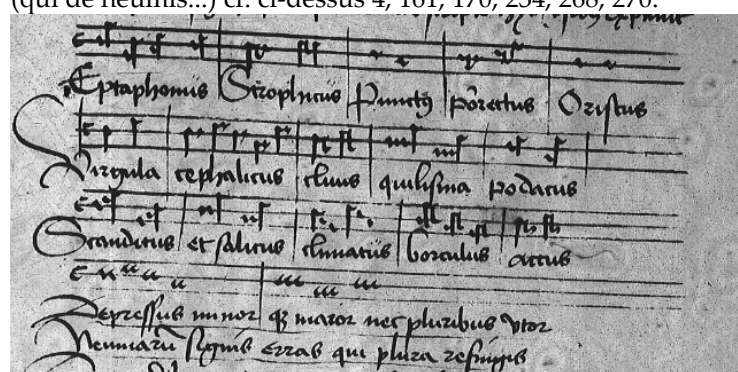 (qui de neumis...) cf. ci-dessus 4, 161, 170, 254, 268, 270.
Eptaphonus Strophicus Punctꝰ porectus Oriscus
Virgula cephalicus clivus quilisma podatus
Scandicus et salicus climacus Torculus ancus
Depressus minor qꝫ maior nec pluribus vtor
Neumarū signis erras qui plura refingis